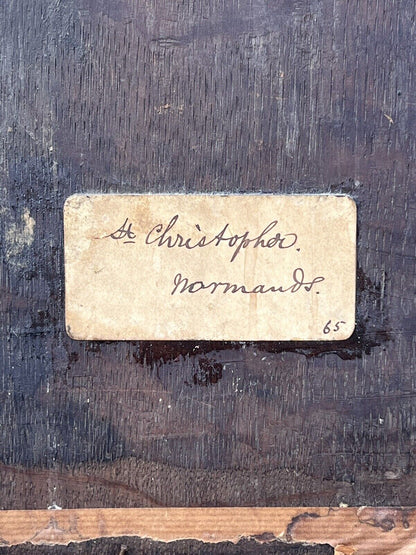 St Christopher.
Normands.
65